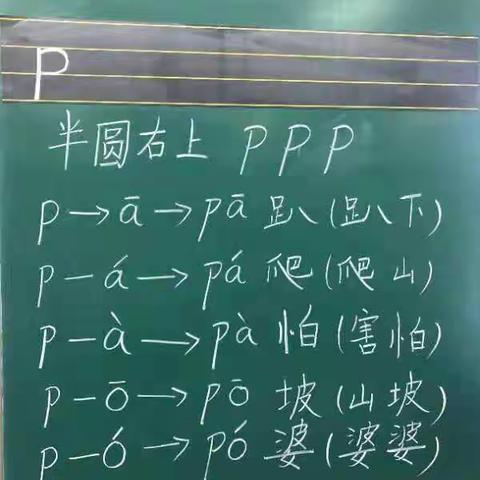 p
半圆右上 p p p
p→ā→pā 趴(趴下)
p-á→pá 爬(爬山)
p-à→pà 怕(害怕)
p-ō→pō 坡(山坡)
p-ó→pó 婆(婆婆)